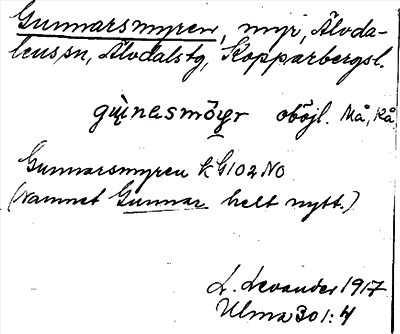 Gunnarsmyren, myr, Älvda-
lens sn, Älvdals tg, Kopparbergs l.
oböjl. Må, Kå.
Gunnarsmyren k G102 NO
(namnet Gunnar helt nytt.)
L. Levander 1917
Ulma 301:4